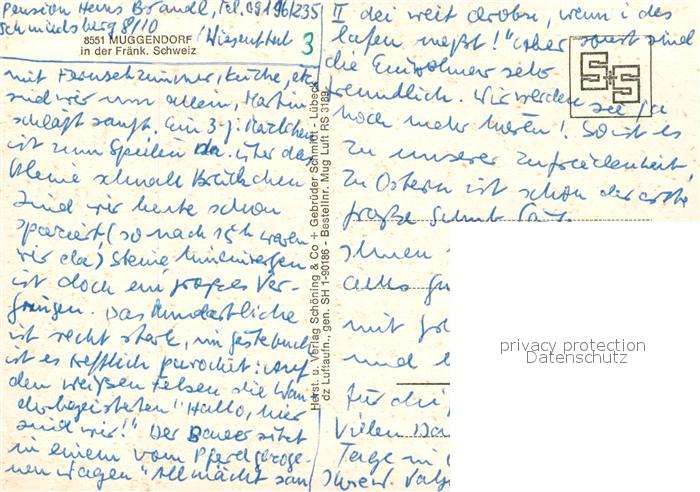 Pension Hans Brandl, Tel. 09196/235
Schmiedsberg 8/10
8551 MUGGENDORF / Wiesenttal
in der Fränk. Schweiz
3
mit Fernsehzimmer, Küche, etc.
sind wir nun allein, Martin
schläft sanft. Ein 3-j. Mädchen
ist zum Spielen da. Über das
kleine schmale Brückchen
sind wir heute schon
spaziert (so nach 15 h waren
wir da) Steine hineinwerfen
ist doch ein großes Ver-
gnügen. Das
ist recht stark, im Gästebuch
ist es trefflich parodiert: Auf
den weißen Felsen die Wan-
derbegeisterten "Hallo, hier
sind wir!" Der Bauer sitzt
in einem vom Pferd gezoge-
nen Wagen "Allmächt san
II dei weit drobn, wenn i des
laufen müßt!" Aber sonst sind
die Einwohner sehr
freundlich. Wir werden sie ja
noch mehr hören! So ist es
zu unserer Zufriedenheit,
zu Ostern ist schon der erste
große
Ihnen
alles
mit
und
für die
vielen
Tage in
Ihrew.
S+S
Horst. u. Verlag Schöning & Co + Gebrüder Schmidt - Lübeck
dz Luftaufn., gen. SH 1-90186 - Bestellnr. Mug Luft RS 3189
privacy protection
Datenschutz